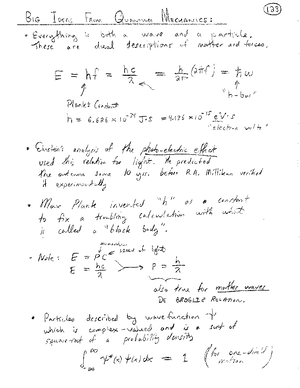 BIG IDEAS FROM QUANTUM MECHANICS:
133
• Everything is both a wave and a particle.
These are dual descriptions of matter and forces.
E = hf = hc/λ = h/2π (2πf) = ħω
Planck's Constant
"h-bar"
h = 6.626 × 10⁻³⁴ J·s = 4.136 × 10⁻¹⁵ eV·s
"electron volts"
• Einstein's analysis of the photoelectric effect
used this relation for light. He predicted
the outcome some 10 yrs. before R.A. Millikan verified
it experimentally
• Max Plank invented "h" as a constant
to fix a troubling calculation with what
is called a "black body".
• Note: E = pc
momentum
speed of light
E = hc/λ
p = h/λ
also true for matter waves
DE BROGLIE RELATION.
• Particles described by wavefunction ψ
which is complex-valued and is a sort of
square-root of a probability density
∫ ψ*(x) ψ(x) dx = 1 (for one-dim'l motion)